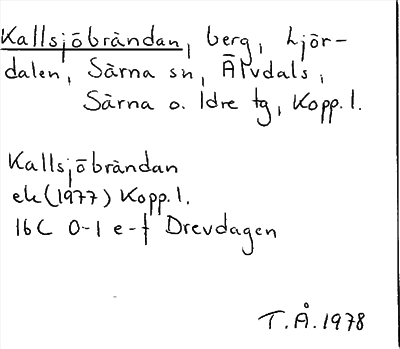 Kallsjöbrändan, berg, Ljör-
dalen, Särna sn, Älvdals,
Särna o. Idre tg, Kopp.l.
Kallsjöbrändan
ek (1977) Kopp.l.
16C 0-1 e-f Drevdagen
T.Å. 1978